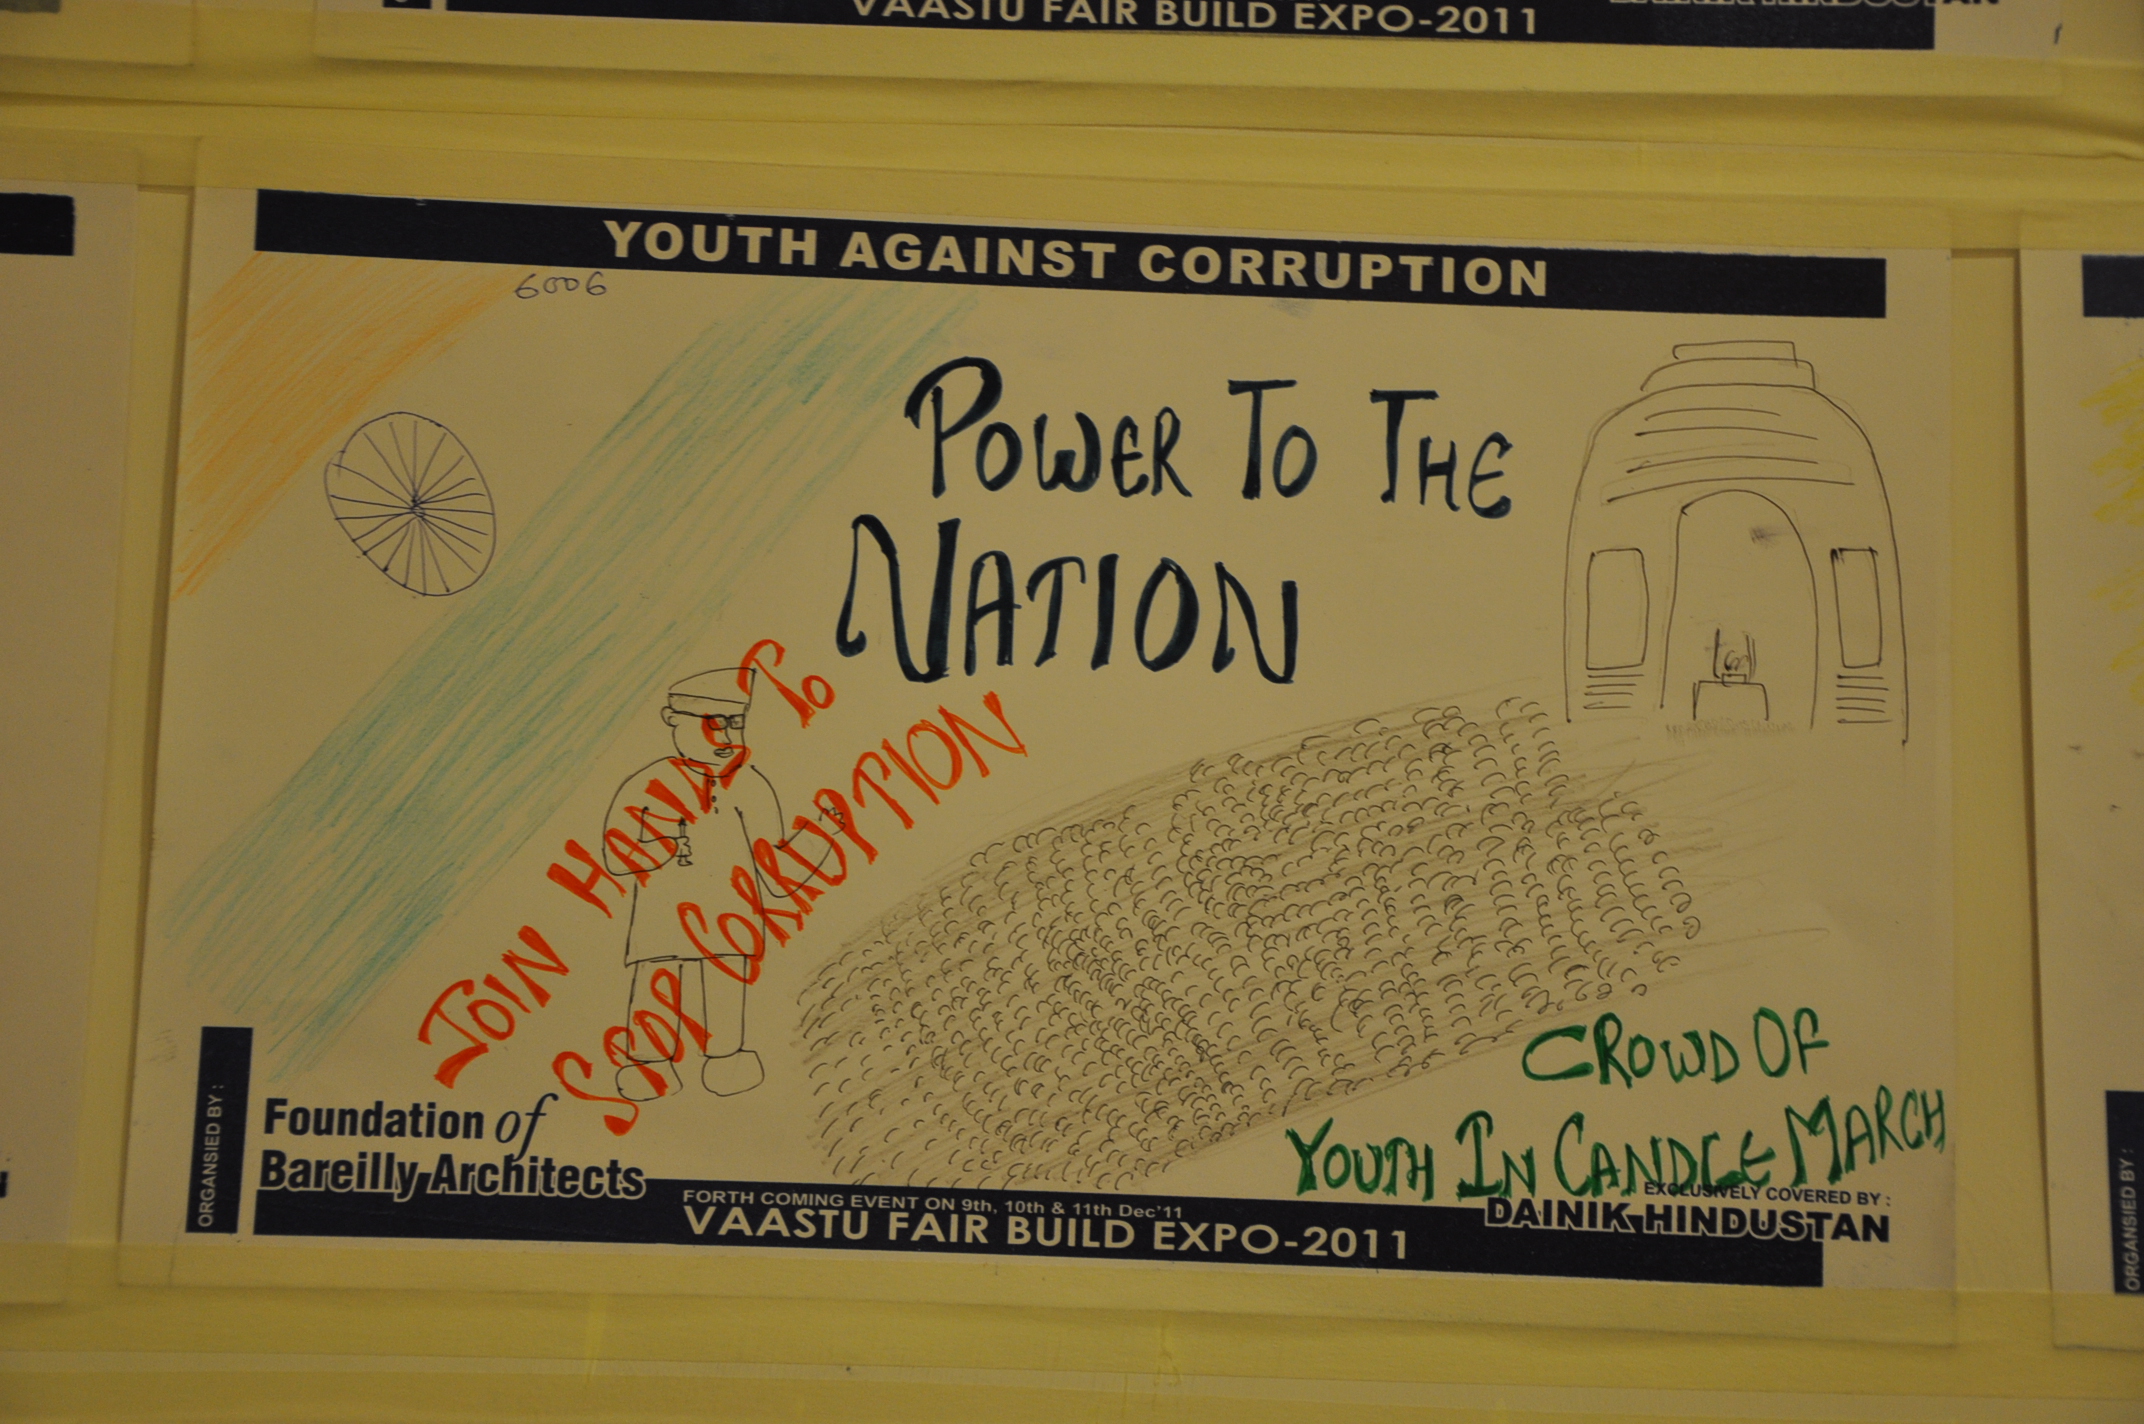 VAASTU FAIR BUILD EXPO-2011
YOUTH AGAINST CORRUPTION
6006
POWER TO THE
NATION
JOIN HANDS TO
STOP CORRUPTION
CROWD OF
YOUTH IN CANDLE MARCH
ORGANSIED BY :
Foundation of
Bareilly Architects
FORTH COMING EVENT ON 9th, 10th & 11th Dec'11
VAASTU FAIR BUILD EXPO-2011
EXCLUSIVELY COVERED BY :
DAINIK HINDUSTAN
ORGANSIED BY :